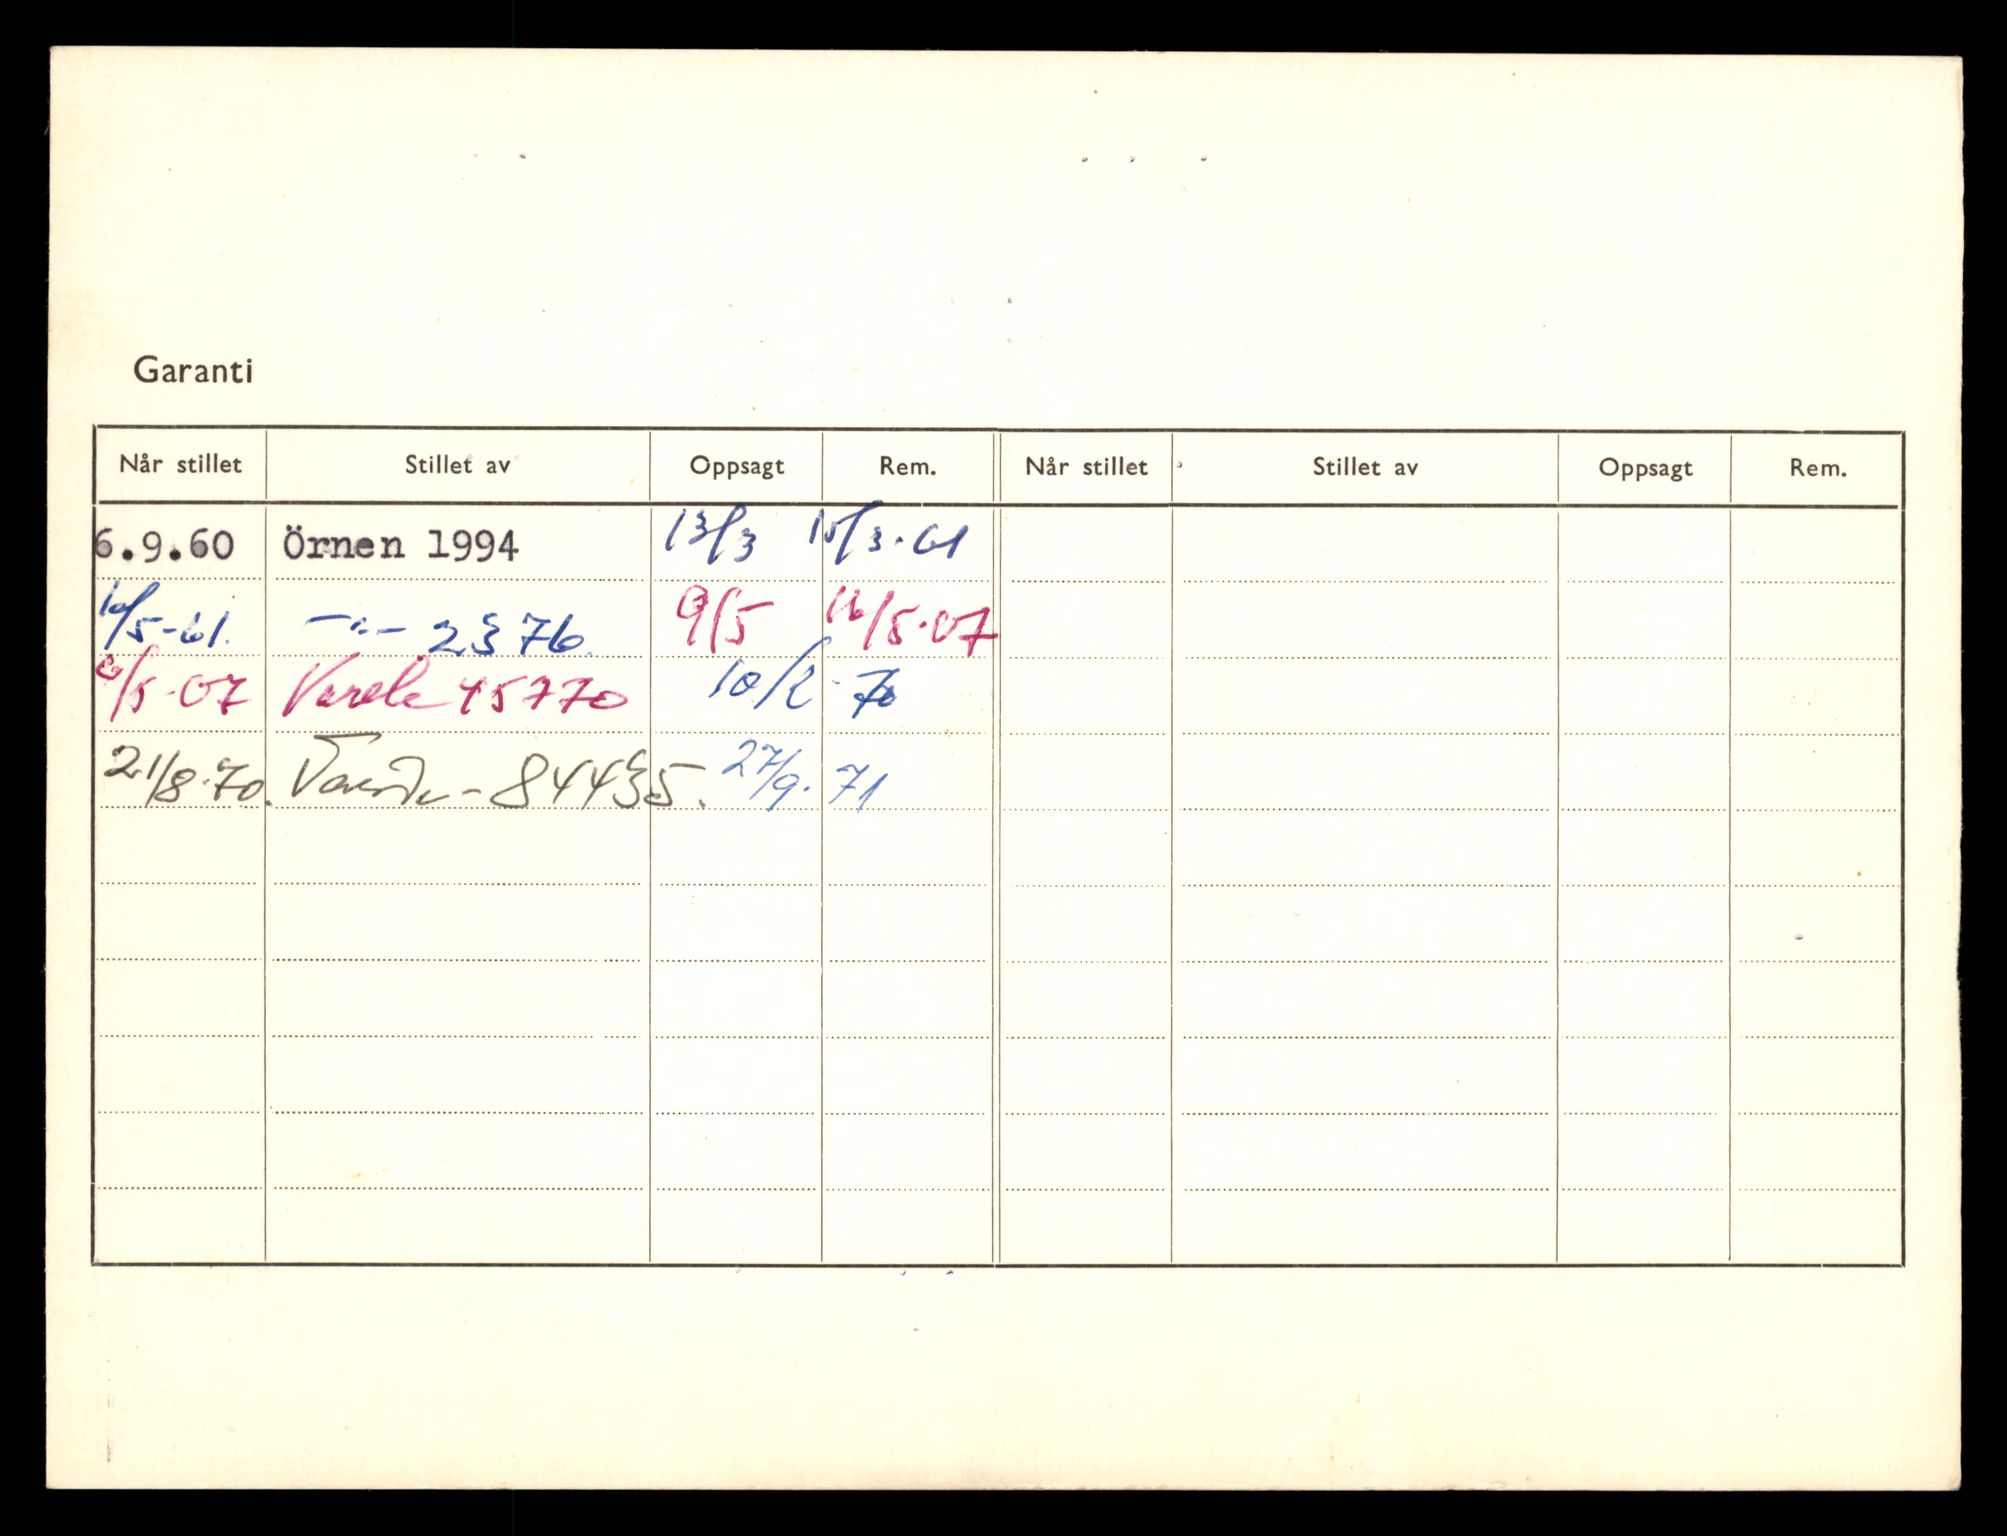 Garanti
Når stillet Stillet av Oppsagt Rem. Når stillet Stillet av Oppsagt Rem.
6.9.60 Örnen 1994 13/3 15/3-61
10/5-61. -"- 2376. 9/5 16/5-67
/5-67 45770 10/2-70
21/8-70. - 84435. 27/9-71